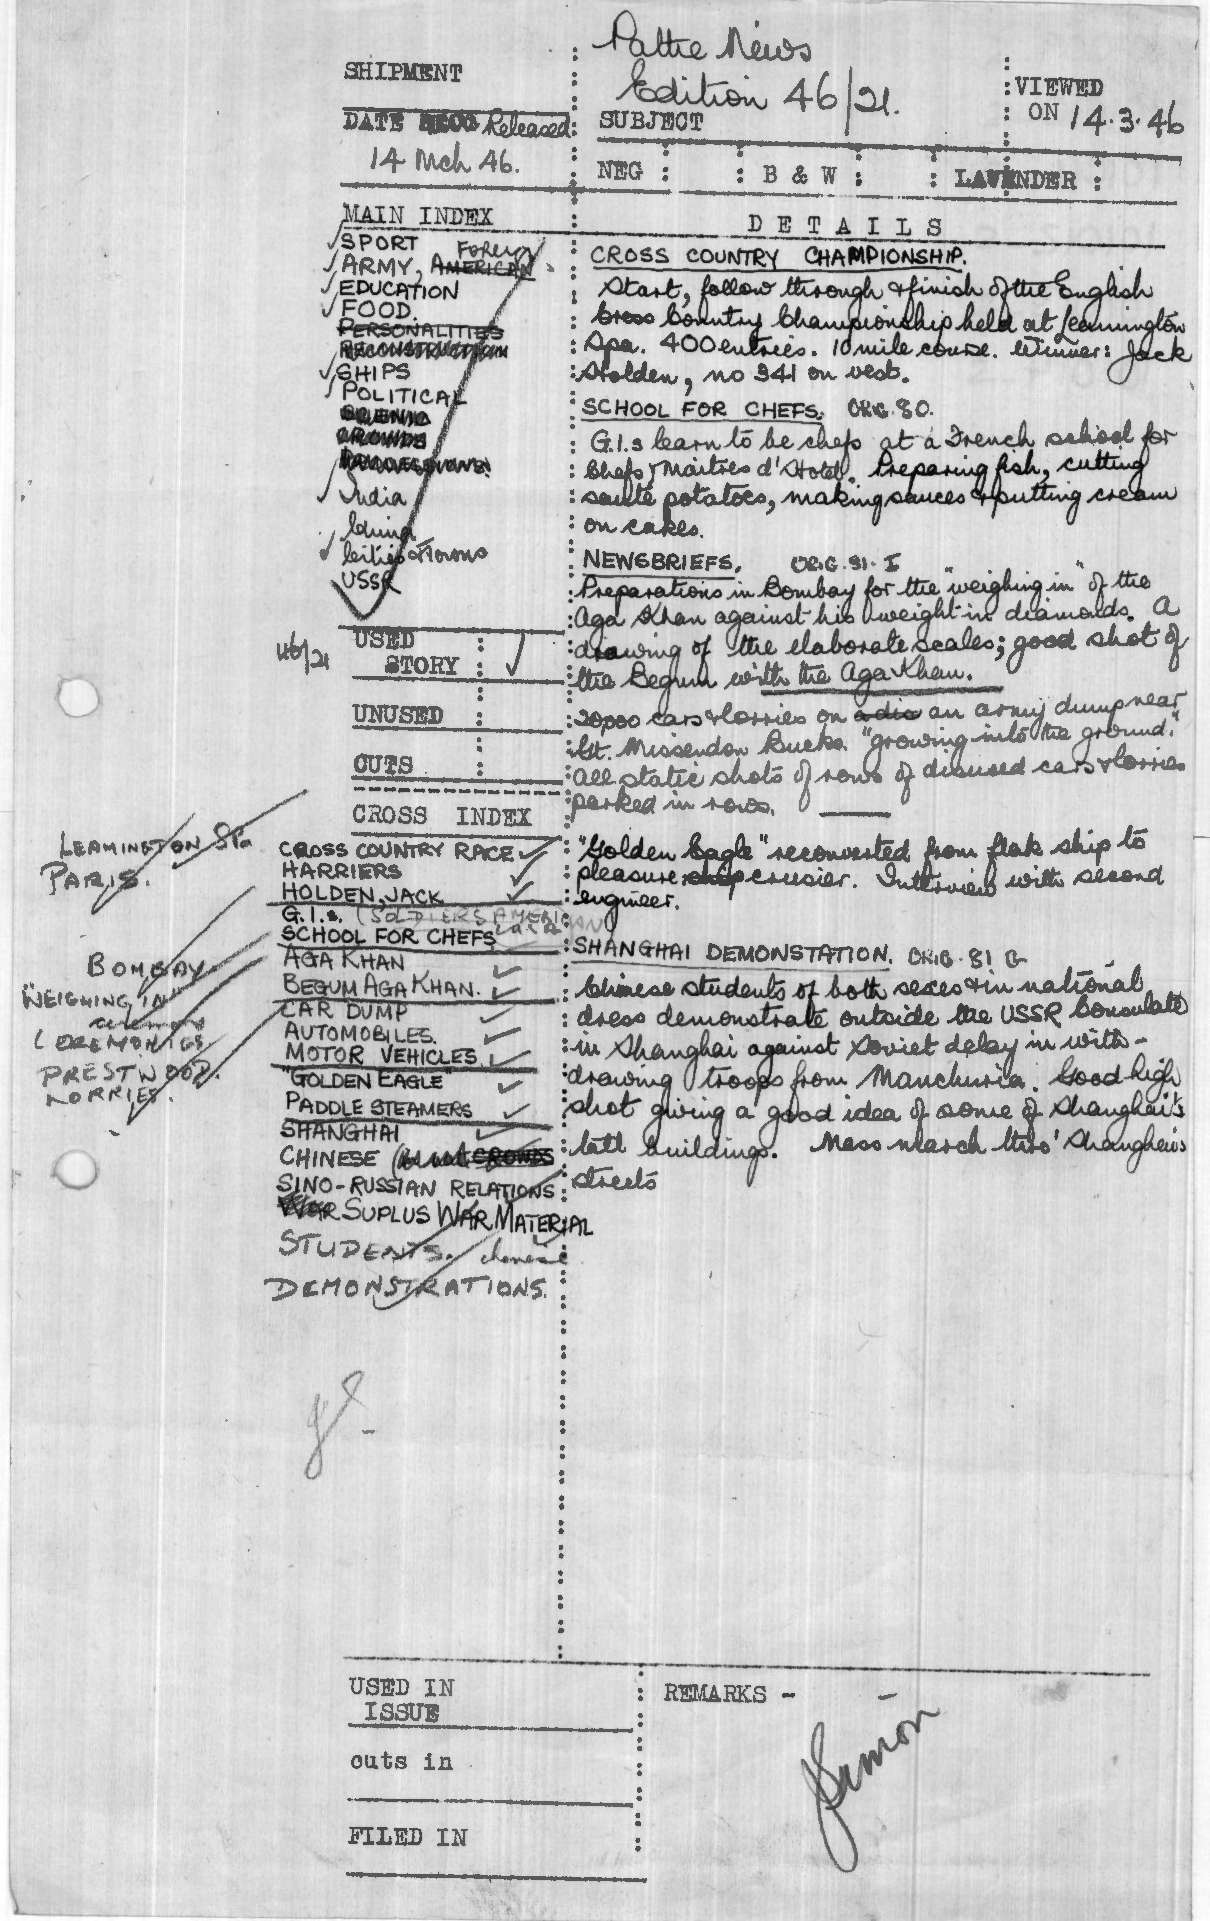 Pathe News
Edition 46/21.
SHIPMENT
DATE Released
14 Mch 46.
SUBJECT
VIEWED
ON 14.3.46
NEG : : B & W : : LAVENDER :
MAIN INDEX
SPORT
ARMY, Foreign AMERICAN
EDUCATION
FOOD.
PERSONALITIES
RECONSTRUCTION
SHIPS
POLITICAL
SCENIC
CROWDS
PROCESSIONS.
India
China
Cities & Towns
USSR
46/21
USED
STORY
UNUSED
CUTS
CROSS INDEX
LEAMINGTON Spa
PARIS.
BOMBAY
"WEIGHING IN"
ceremony
CEREMONIES
PRESTWOOD.
LORRIES.
CROSS COUNTRY RACE
HARRIERS
HOLDEN, JACK
G.I.s. (SOLDIERS AMERICAN)
SCHOOL FOR CHEFS
AGA KHAN
BEGUM AGA KHAN.
CAR DUMP
AUTOMOBILES.
MOTOR VEHICLES.
"GOLDEN EAGLE"
PADDLE STEAMERS
SHANGHAI
CHINESE CROWDS
SINO-RUSSIAN RELATIONS
WAR SUPLUS WAR MATERIAL
STUDENTS. chinese
DEMONSTRATIONS.
DETAILS
CROSS COUNTRY CHAMPIONSHIP.
Start, follow through & finish of the English
Cross Country Championship held at Leamington
Spa. 400 entries. 10 mile course. Winner: Jack
Holden, no 341 on vest.
SCHOOL FOR CHEFS. ORIG. 80.
G.I.s learn to be chefs at a French school for
Chefs & Maitres d'Hotel. Preparing fish, cutting
sauté potatoes, making sauces & putting cream
on cakes.
NEWSBRIEFS. ORIG. 81. I
Preparations in Bombay for the "weighing in" of the
Aga Khan against his weight in diamonds. A
drawing of the elaborate scales; good shot of
the Begum with the Aga Khan.
20,000 cars & lorries on a dis an army dump near
Gt. Missendon Bucks. "growing into the ground."
All static shots of rows of disused cars & lorries
parked in rows.
"Golden Eagle" reconverted from flak ship to
pleasure ship crusier. Interview with second
engineer.
SHANGHAI DEMONSTATION. ORIG. 81 G
Chinese students of both sexes & in national
dress demonstrate outside the USSR Consulate
in Shanghai against Soviet delay in with-
drawing troops from Manchuria. Good high
shot giving a good idea of some of Shanghai's
tall buildings. Mass march thro' Shanghai's
streets
USED IN
ISSUE
cuts in
FILED IN
REMARKS -
JSimon